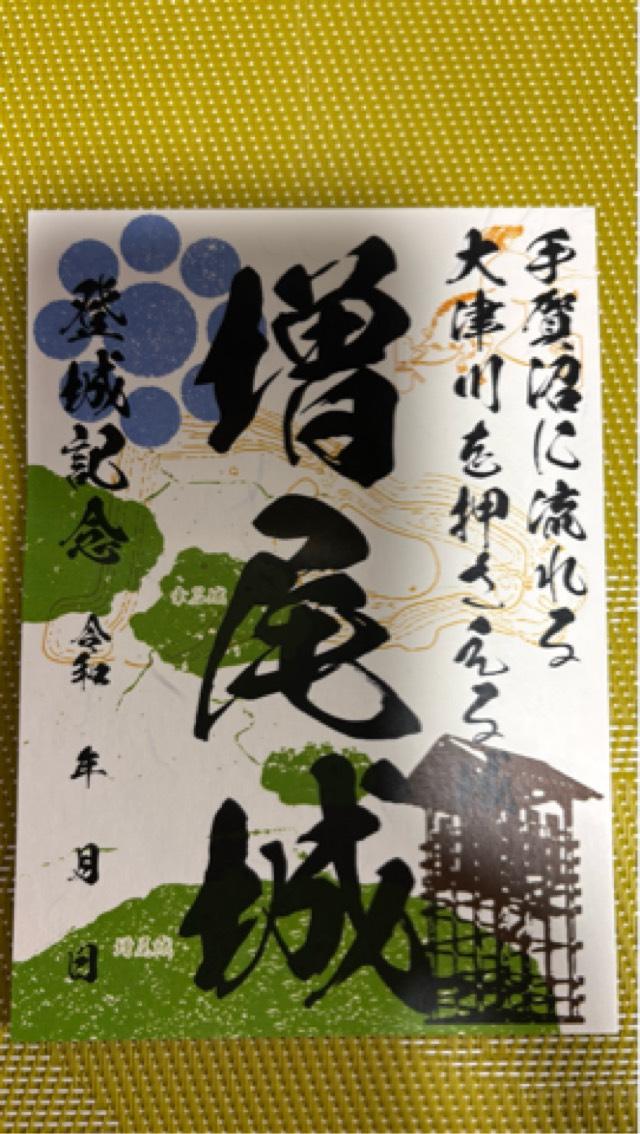 手賀沼に流れる
大津川を押さえる城
増尾城
登城記念
令和 年 月 日
増尾城